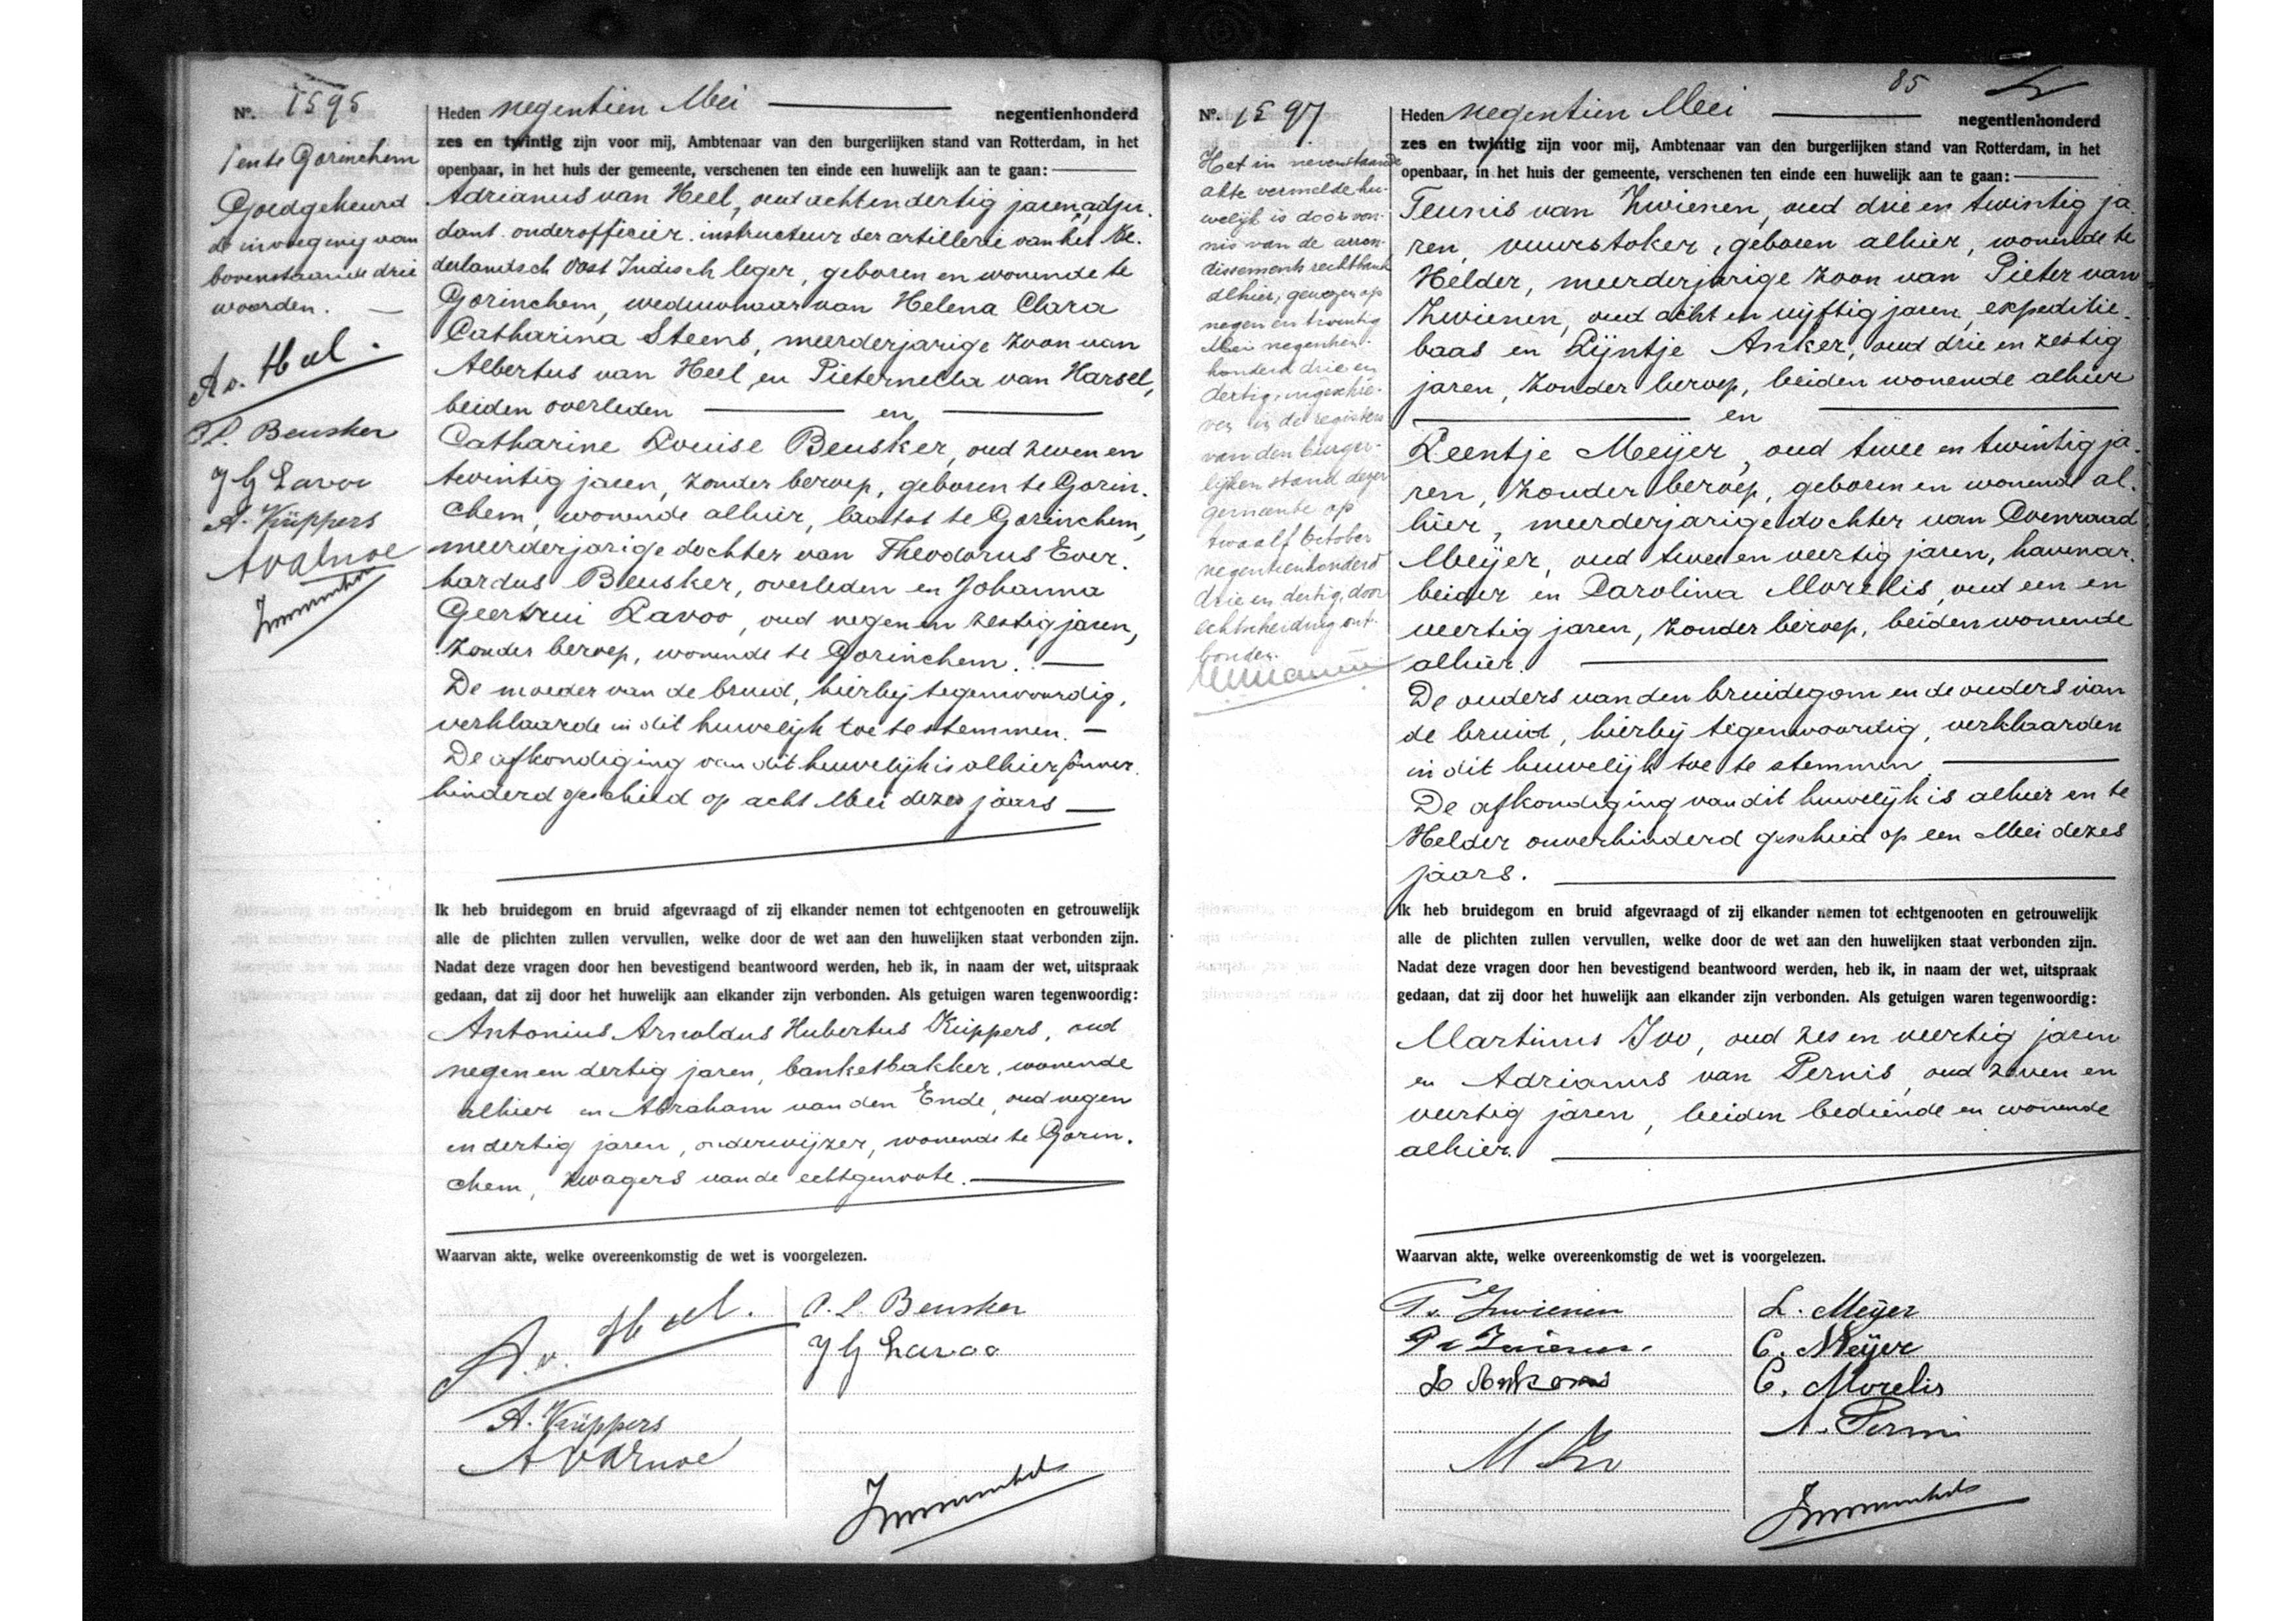 Nº. 1595
/ en te Gorinchem
Goedgekeurd
de invoeging van
bovenstaande drie
woorden. —
A v. Heel.
C. L. Beusker
J G Lavoo
A. Küppers
Heden negentien Mei — negentienhonderd
zes en twintig zijn voor mij, Ambtenaar van den burgerlijken stand van Rotterdam, in het
openbaar, in het huis der gemeente, verschenen ten einde een huwelijk aan te gaan: —
Adrianus van Heel, oud acht en dertig jaren, adju-
dant-onderofficier-instructeur der artillerie van het Ne-
derlandsch Oost Indisch leger, geboren en wonende te
Gorinchem, weduwnaar van Helena Clara
Catharina Steens, meerderjarige zoon van
Albertus van Heel en Pieternella van Harsel,
beiden overleden — en —
Catharine Louise Beusker, oud zeven en
twintig jaren, zonder beroep, geboren te Gorin-
chem, wonende alhier, laatst te Gorinchem,
meerderjarige dochter van Theodorus Ever-
hardus Beusker, overleden en Johanna
Geertrui Lavoo, oud negen en zestig jaren,
zonder beroep, wonende te Gorinchem. —
De moeder van de bruid, hierbij tegenwoordig,
verklaarde in dit huwelijk toe te stemmen. —
De afkondiging van dit huwelijk is alhier / onver-
hinderd geschied op acht Mei dezes jaars —
Ik heb bruidegom en bruid afgevraagd of zij elkander nemen tot echtgenooten en getrouwelijk
alle de plichten zullen vervullen, welke door de wet aan den huwelijken staat verbonden zijn.
Nadat deze vragen door hen bevestigend beantwoord werden, heb ik, in naam der wet, uitspraak
gedaan, dat zij door het huwelijk aan elkander zijn verbonden. Als getuigen waren tegenwoordig:
Antonius Arnoldus Hubertus Küppers, oud
negen en dertig jaren, banketbakker, wonende
alhier en Abraham van den Ende, oud negen
en dertig jaren, onderwijzer, wonende te Gorin-
chem, zwagers van de echtgenoote. —
Waarvan akte, welke overeenkomstig de wet is voorgelezen.
A v. Heel.
C. L. Beusker
J G Lavoo
A. Küppers
85
Nº. 1597
Het in nevenstaande
akte vermelde hu-
welijk is door von-
nis van de arron-
dissements rechtbank
alhier, gewezen op
negen en twintig
Mei negentien-
honderd drie en
dertig, ingeschre-
ven in de registers
van den burger-
lijken stand dezer
gemeente op
twaalf October
negentienhonderd
drie en dertig, door
echtscheiding ont-
bonden.
Heden negentien Mei — negentienhonderd
zes en twintig zijn voor mij, Ambtenaar van den burgerlijken stand van Rotterdam, in het
openbaar, in het huis der gemeente, verschenen ten einde een huwelijk aan te gaan: —
Teunis van Zwienen, oud drie en twintig ja-
ren, vuurstoker, geboren alhier, wonende te
Helder, meerderjarige zoon van Pieter van
Zwienen, oud acht en vijftig jaren, expeditie-
baas en Lijntje Anker, oud drie en zestig
jaren, zonder beroep, beiden wonende alhier
— en —
Leentje Meijer, oud twee en twintig ja-
ren, zonder beroep, geboren en wonende al-
hier, meerderjarige dochter van Coenraad
Meijer, oud twee en veertig jaren, havenar-
beider en Carolina Morelis, oud een en
veertig jaren, zonder beroep, beiden wonende
alhier. —
De ouders van den bruidegom en de ouders van
de bruid, hierbij tegenwoordig, verklaarden
in dit huwelijk toe te stemmen —
De afkondiging van dit huwelijk is alhier en te
Helder onverhinderd geschied op een Mei dezes
jaars. —
Ik heb bruidegom en bruid afgevraagd of zij elkander nemen tot echtgenooten en getrouwelijk
alle de plichten zullen vervullen, welke door de wet aan den huwelijken staat verbonden zijn.
Nadat deze vragen door hen bevestigend beantwoord werden, heb ik, in naam der wet, uitspraak
gedaan, dat zij door het huwelijk aan elkander zijn verbonden. Als getuigen waren tegenwoordig:
Martinus Ivo, oud zes en veertig jaren
en Adrianus van Pernis, oud zeven en
veertig jaren, beiden bediende en wonende
alhier. —
Waarvan akte, welke overeenkomstig de wet is voorgelezen.
T. v. Zwienen
L. Meijer
P v Zwienen
C. Meijer
C. Morelis
M Ivo